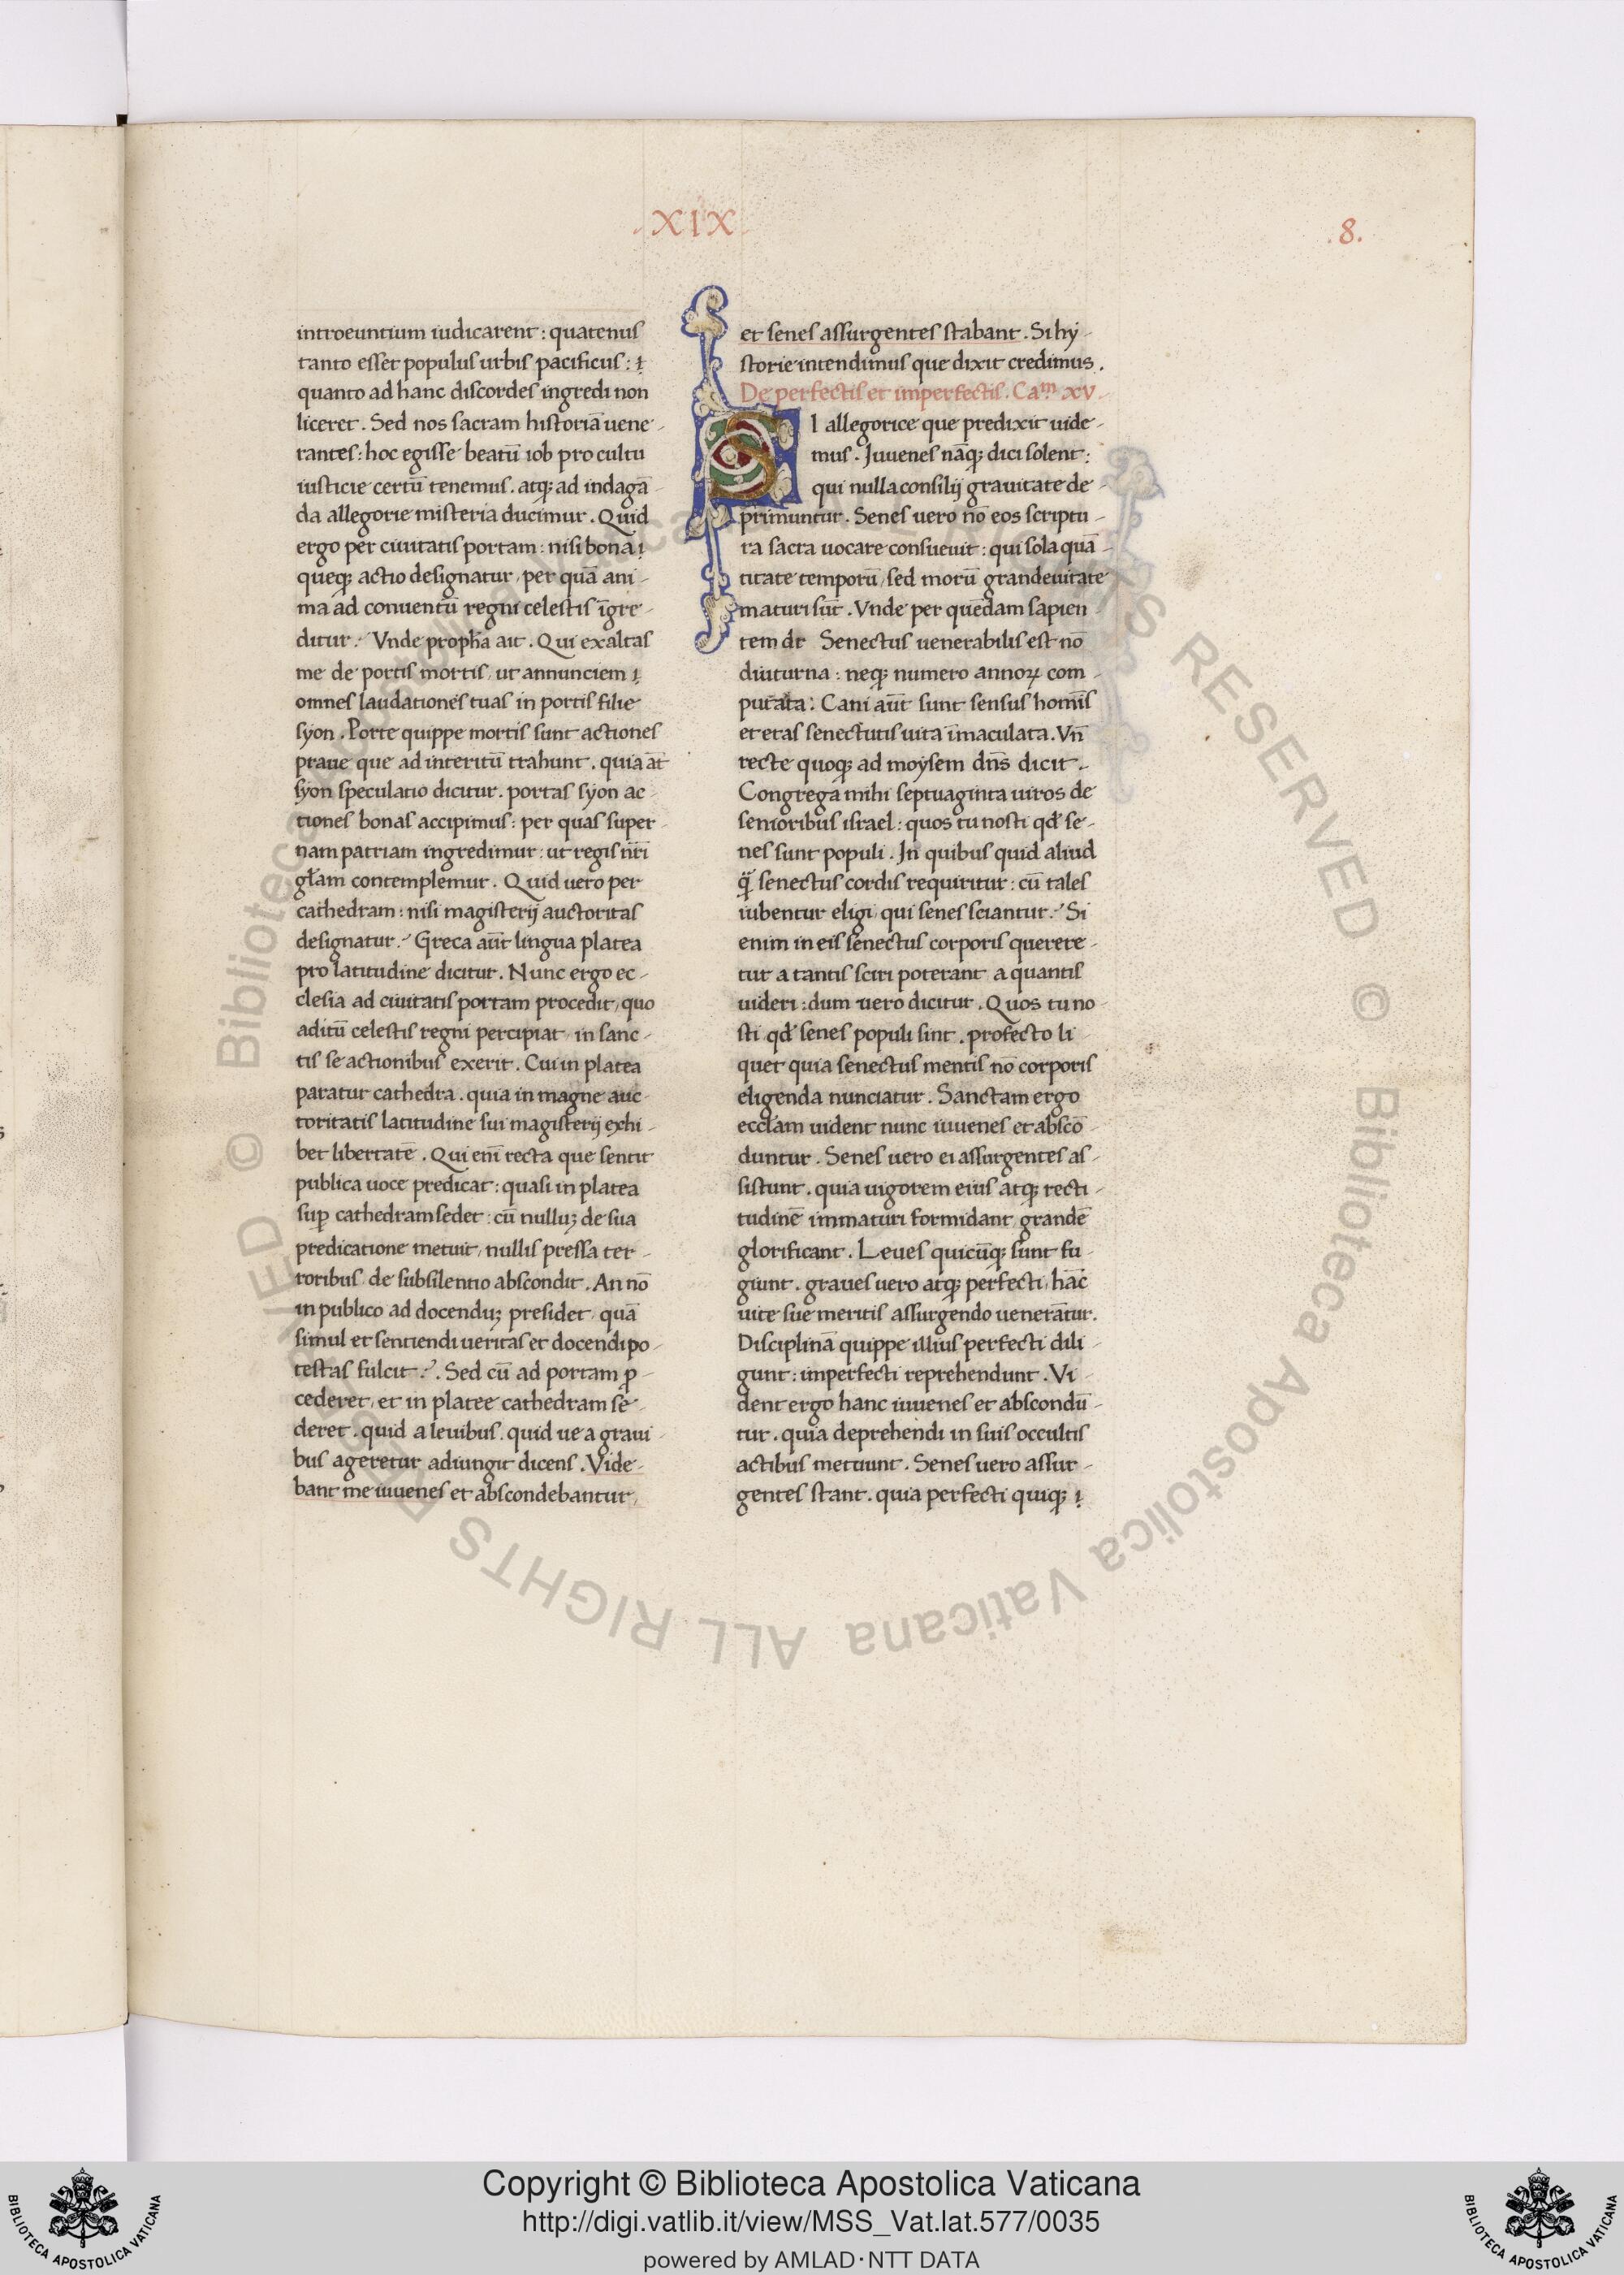 .XIX.
.8.
introeuntium iudicarent : quatenus
tanto esset populus urbis pacificus :
quanto ad hanc discordes ingredi non
liceret . Sed nos sacram historiā uene-
rantes : hoc egisse beatū iob pro cultu
iusticie certū tenemus . atq; ad indagā-
da allegorie misteria ducimur . Quid
ergo per ciuitatis portam : nisi bona
queq; actio designatur , per quā ani-
ma ad conuentū regni celestis īgre-
ditur ? Vnde propha ait . Qui exaltas
me de portis mortis , ut annunciem
omnes laudationes tuas in portis filie
syon . Porte quippe mortis sunt actiones
praue que ad interitū trahunt . quia at̄
syon speculatio dicitur . portas syon ac-
tiones bonas accipimus : per quas super-
nam patriam ingredimur : ut regis nr̄i
głam contemplemur . Quid uero per
cathedram : nisi magisterij auctoritas
designatur ? Greca aūt lingua platea
pro latitudine dicitur . Nunc ergo ec-
clesia ad ciuitatis portam procedit , quo
aditū celestis regni percipiat , in sanc-
tis se actionibus exerit . Cui in platea
paratur cathedra . quia in magne auc-
toritatis latitudine sui magisterij exhi-
bet libertatē . Qui eni̅ recta que sentit
publica uoce predicat : quasi in platea
sup̱ cathedram sedet : cū nulluz de sua
predicatione metuit , nullis pressa ter-
roribus , de subsilentio abscondit . An nō
in publico ad docenduz presidet , quā
simul et sentiendi ueritas et docendi po-
testas fulcit ? . Sed cū ad portam ꝓ-
cederet , et in platee cathedram se-
deret . quid a leuibus . quid ue a graui-
bus ageretur adiungit dicens . Vide-
bant me iuuenes et abscondebantur ,
et senes assurgentes stabant . Si hy-
storie intendimus que dixit credimus .
De perfectis et imperfectis . Caᵐ. xv.
SI allegorice que predixit uide-
mus . Juuenes nāq; dici solent :
qui nulla consilij grauitate de-
primuntur . Senes uero nō eos scriptu-
ra sacra uocare consueuit : qui sola quā-
titate temporū , sed morū grandeuitate
maturi sūt . Vnde per quedam sapien-
tem dr Senectus uenerabilis est nō
diuturna : neq; numero annoꝝ com-
putata : Cani aūt sunt sensus homīs
et etas senectutis uita īmaculata . Vn̄
recte quoq; ad moysem dn̄s dicit .
Congrega mihi septuaginta uiros de
senioribus israel : quos tu nosti qđ se-
nes sunt populi . In quibus quid aliud
q̃ senectus cordis requiritur : cū tales
iubentur eligi qui senes sciantur ? Si
enim in eis senectus corporis querere-
tur a tantis sciri poterant a quantis
uideri : dum uero dicitur . Quos tu no-
sti qđ senes populi sint . profecto li-
quet quia senectus mentis nō corporis
eligenda nunciatur . Sanctam ergo
ecclam uident nunc iuuenes et abscō-
duntur . Senes uero ei assurgentes as-
sistunt . quia uigorem eius atq; recti-
tudinē immaturi formidant , grandē
glorificant . Leues quicūq; sunt fu-
giunt . graues uero atq; perfecti , hāc
uite sue meritis assurgendo uenerātur .
Disciplinā quippe illius perfecti dili-
gunt : imperfecti reprehendunt . Vi-
dent ergo hanc iuuenes et abscondū-
tur . quia deprehendi in suis occultis
actibus metuunt . Senes uero assur-
gentes stant . quia perfecti quiq;
© Biblioteca Apostolica Vaticana ALL RIGHTS RESERVED © Biblioteca Apostolica Vaticana ALL RIGHTS RESERVED
Copyright © Biblioteca Apostolica Vaticana
http://digi.vatlib.it/view/MSS_Vat.lat.577/0035
powered by AMLAD·NTT DATA
BIBLIOTECA APOSTOLICA VATICANA
BIBLIOTECA APOSTOLICA VATICANA